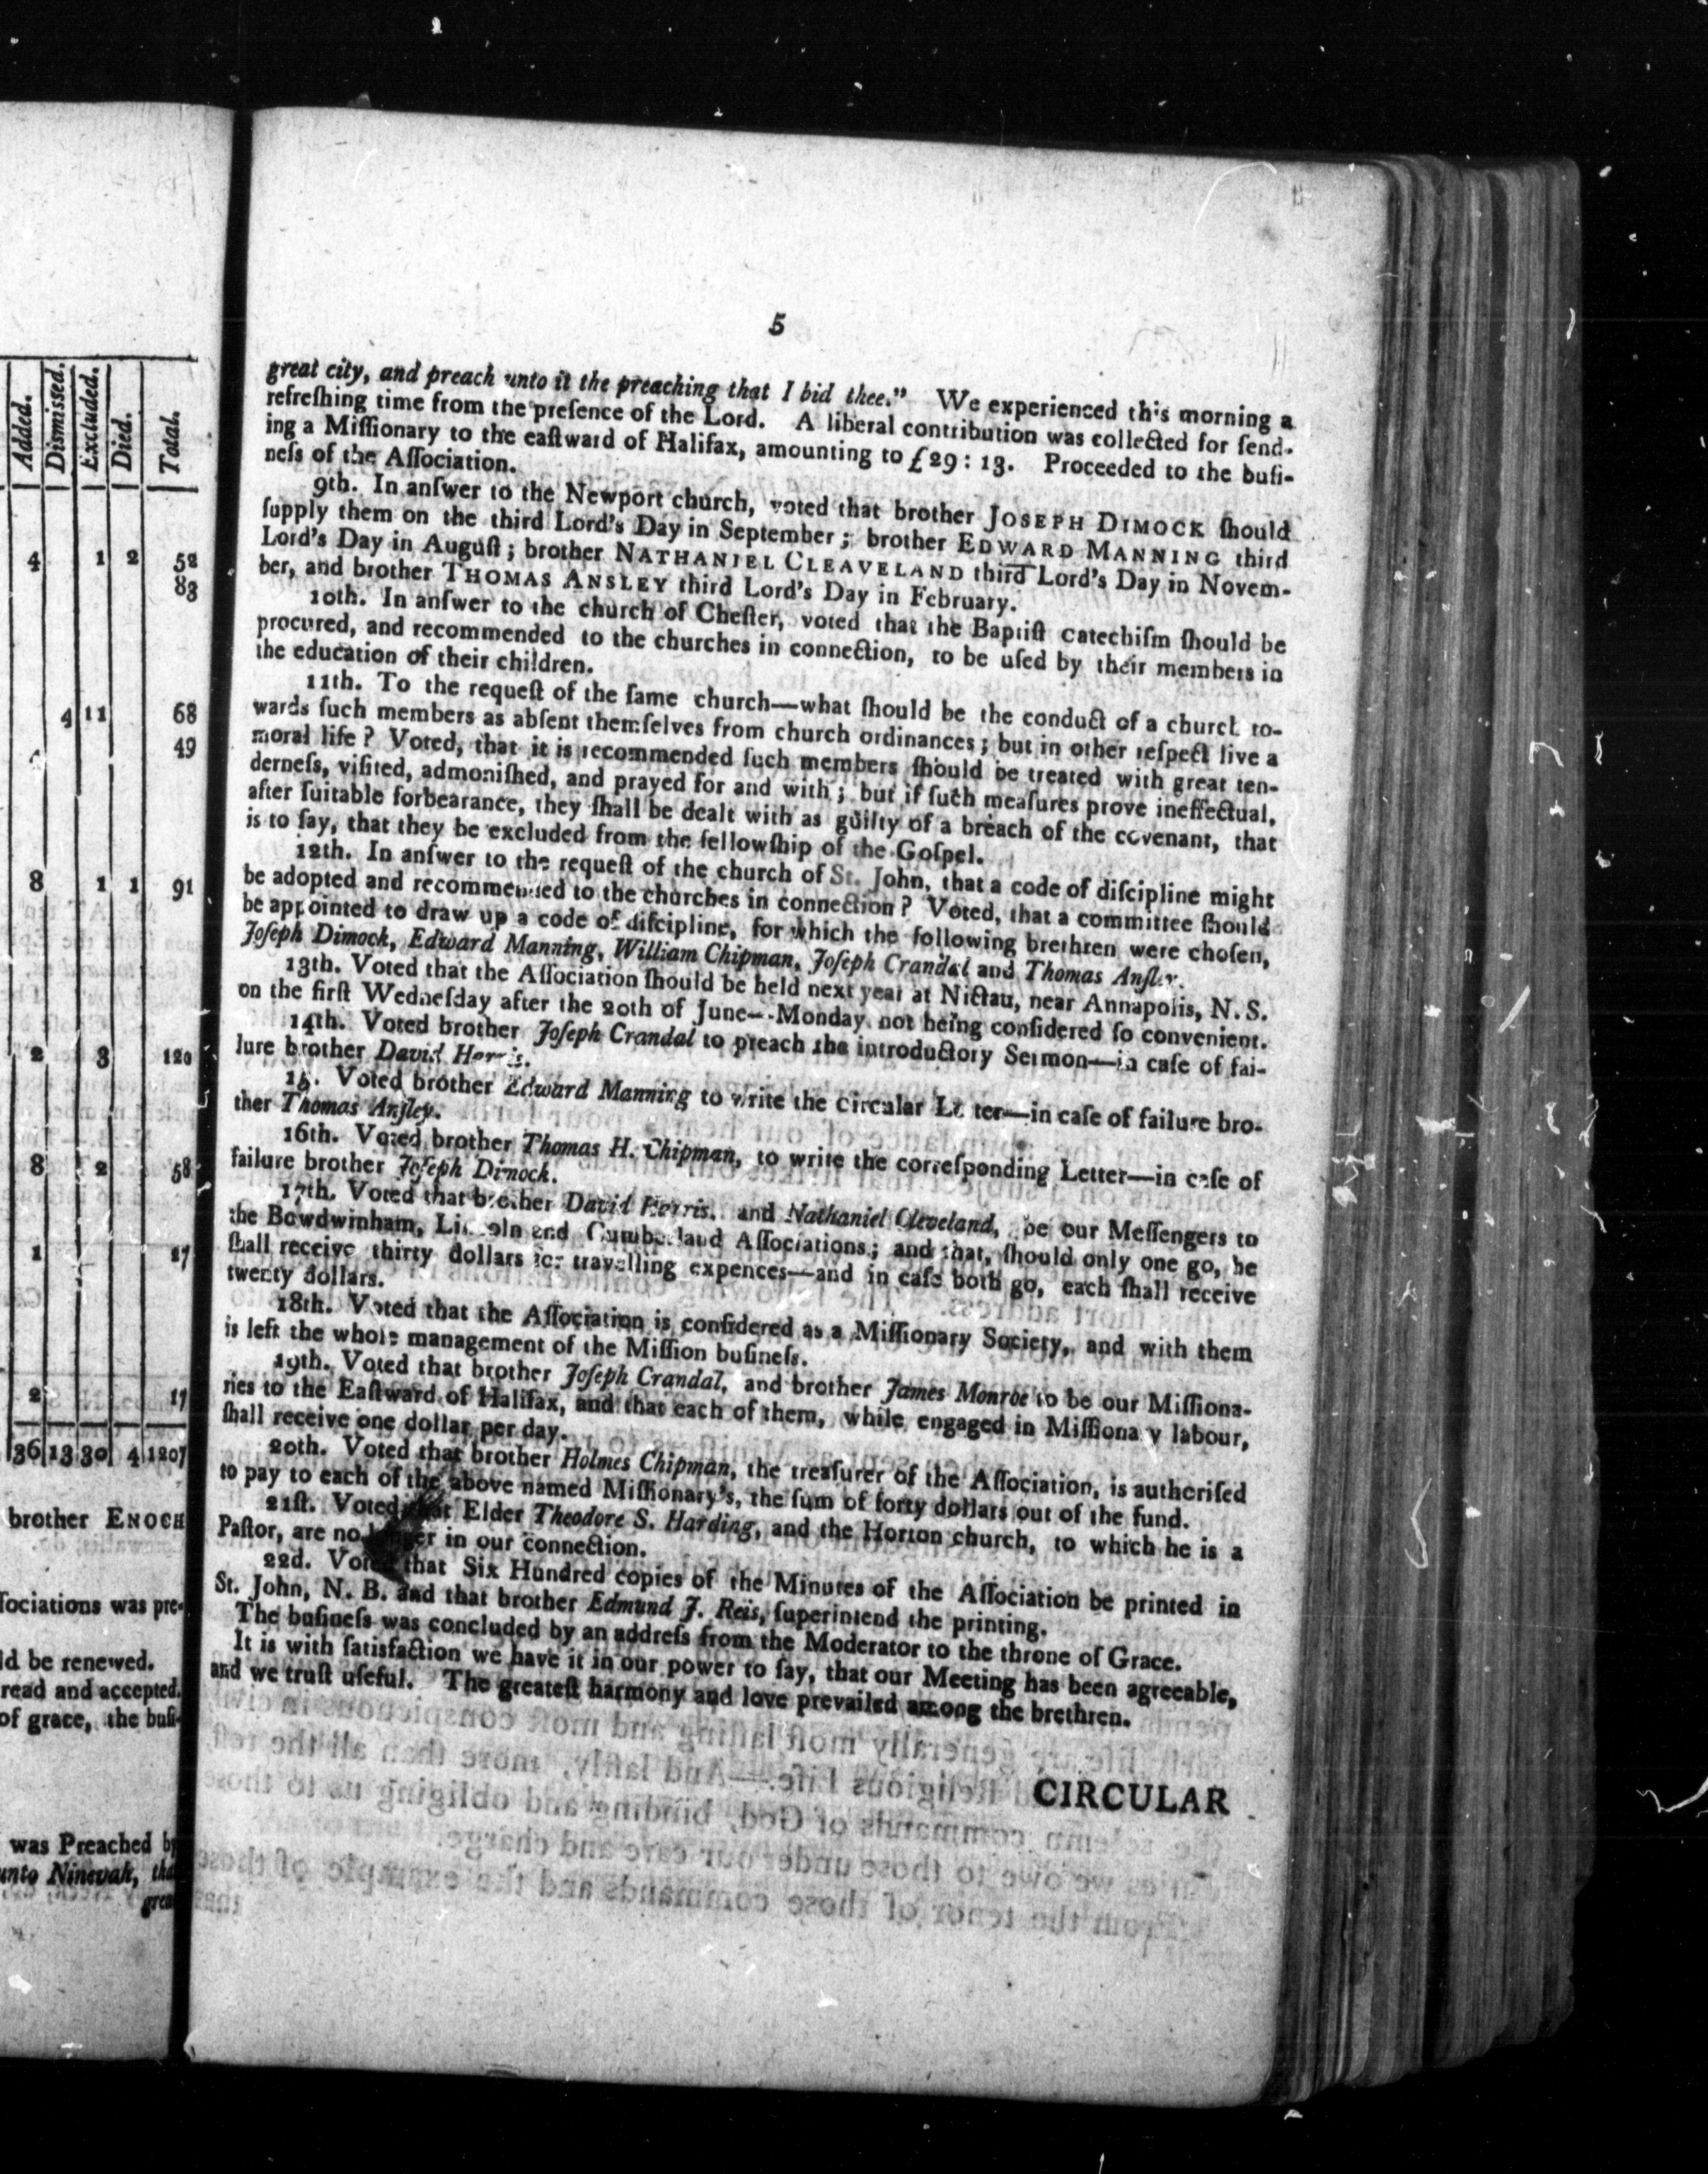 Added. Dismissed. Excluded. Died. Total.
4 1 2 52
83
4 11 68
49
8 1 1 91
2 3 120
8 2 58
1 27
2 17
36 13 30 4 1207
brother ENOCH
ſociations was pre-
ld be renewed.
read and accepted.
of grace, the buſi-
was Preached by
unto Ninevah, that
great
5
great city, and preach unto it the preaching that I bid thee." We experienced this morning a
refreſhing time from the preſence of the Lord. A liberal contribution was collected for ſend-
ing a Miſſionary to the eaſtward of Halifax, amounting to £29 : 13. Proceeded to the buſi-
neſs of the Aſſociation.
9th. In anſwer to the Newport church, voted that brother JOSEPH DIMOCK ſhould
ſupply them on the third Lord's Day in September ; brother EDWARD MANNING third
Lord's Day in Auguſt ; brother NATHANIEL CLEAVELAND third Lord's Day in Novem-
ber, and brother THOMAS ANSLEY third Lord's Day in February.
10th. In anſwer to the church of Cheſter, voted that the Baptiſt catechiſm ſhould be
procured, and recommended to the churches in connection, to be uſed by their members in
the education of their children.
11th. To the requeſt of the ſame church—what ſhould be the conduct of a church to-
wards ſuch members as abſent themſelves from church ordinances ; but in other reſpect live a
moral life ? Voted, that it is recommended ſuch members ſhould be treated with great ten-
derneſs, viſited, admoniſhed, and prayed for and with ; but if ſuch meaſures prove ineffectual,
after ſuitable forbearance, they ſhall be dealt with as guilty of a breach of the covenant, that
is to ſay, that they be excluded from the fellowſhip of the Goſpel.
12th. In anſwer to the requeſt of the church of St. John, that a code of diſcipline might
be adopted and recommended to the churches in connection ? Voted, that a committee ſhould
be appointed to draw up a code of diſcipline, for which the following brethren were choſen,
Joſeph Dimock, Edward Manning, William Chipman, Joſeph Crandal and Thomas Anſley.
13th. Voted that the Aſſociation ſhould be held next year at Nictau, near Annapolis, N. S.
on the firſt Wedneſday after the 20th of June—Monday not being conſidered ſo convenient.
14th. Voted brother Joſeph Crandal to preach the introductory Sermon—in caſe of fai-
lure brother David Harris.
15. Voted brother Edward Manning to write the Circular Letter—in caſe of failure bro-
ther Thomas Anſley.
16th. Voted brother Thomas H. Chipman, to write the correſponding Letter—in caſe of
failure brother Joſeph Dimock.
17th. Voted that brother David Harris, and Nathaniel Cleveland, be our Meſſengers to
the Bowdwinham, Lincoln and Cumberland Aſſociations ; and that, ſhould only one go, he
ſhall receive thirty dollars for travelling expences—and in caſe both go, each ſhall receive
twenty dollars.
18th. Voted that the Aſſociation is conſidered as a Miſſionary Society, and with them
is left the whole management of the Miſſion buſineſs.
19th. Voted that brother Joſeph Crandal, and brother James Monroe to be our Miſſiona-
ries to the Eaſtward of Halifax, and that each of them, while engaged in Miſſionary labour,
ſhall receive one dollar per day.
20th. Voted that brother Holmes Chipman, the treaſurer of the Aſſociation, is authoriſed
to pay to each of the above named Miſſionary's, the ſum of forty dollars out of the fund.
21ſt. Voted that Elder Theodore S. Harding, and the Horton church, to which he is a
Paſtor, are no longer in our connection.
22d. Voted that Six Hundred copies of the Minutes of the Aſſociation be printed in
St. John, N. B. and that brother Edmund J. Reis, ſuperintend the printing.
The buſineſs was concluded by an addreſs from the Moderator to the throne of Grace.
It is with ſatisfaction we have it in our power to ſay, that our Meeting has been agreeable,
and we truſt uſeful. The greateſt harmony and love prevailed among the brethren.
CIRCULAR